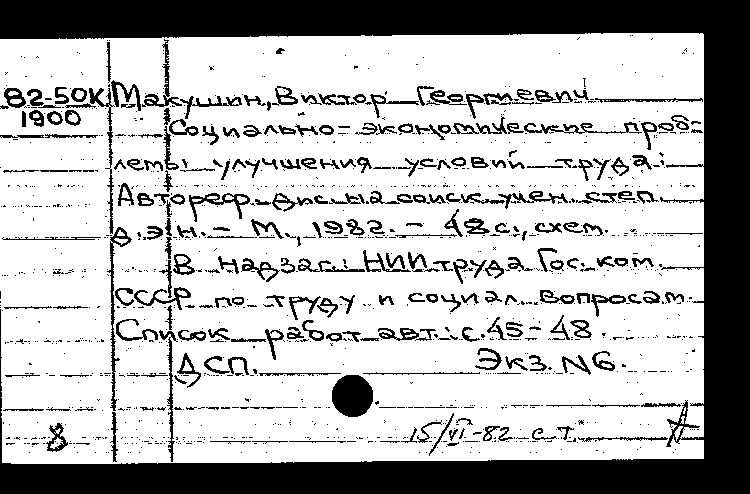 82-50К Макушин, Виктор Георгиевич
1900
Социально-экономические проб-
лемы улучшения условий труда:
Автореф. дис. на соиск. учен. степ.
д.э.н. - М., 1982. - 48 с., схем.
В надзаг.: НИИ труда Гос. ком.
СССР по труду и социал. вопросам.
Список работ авт.: с. 45-48.
ДСП. Экз. N6.
8 15/VI-82 с.т.